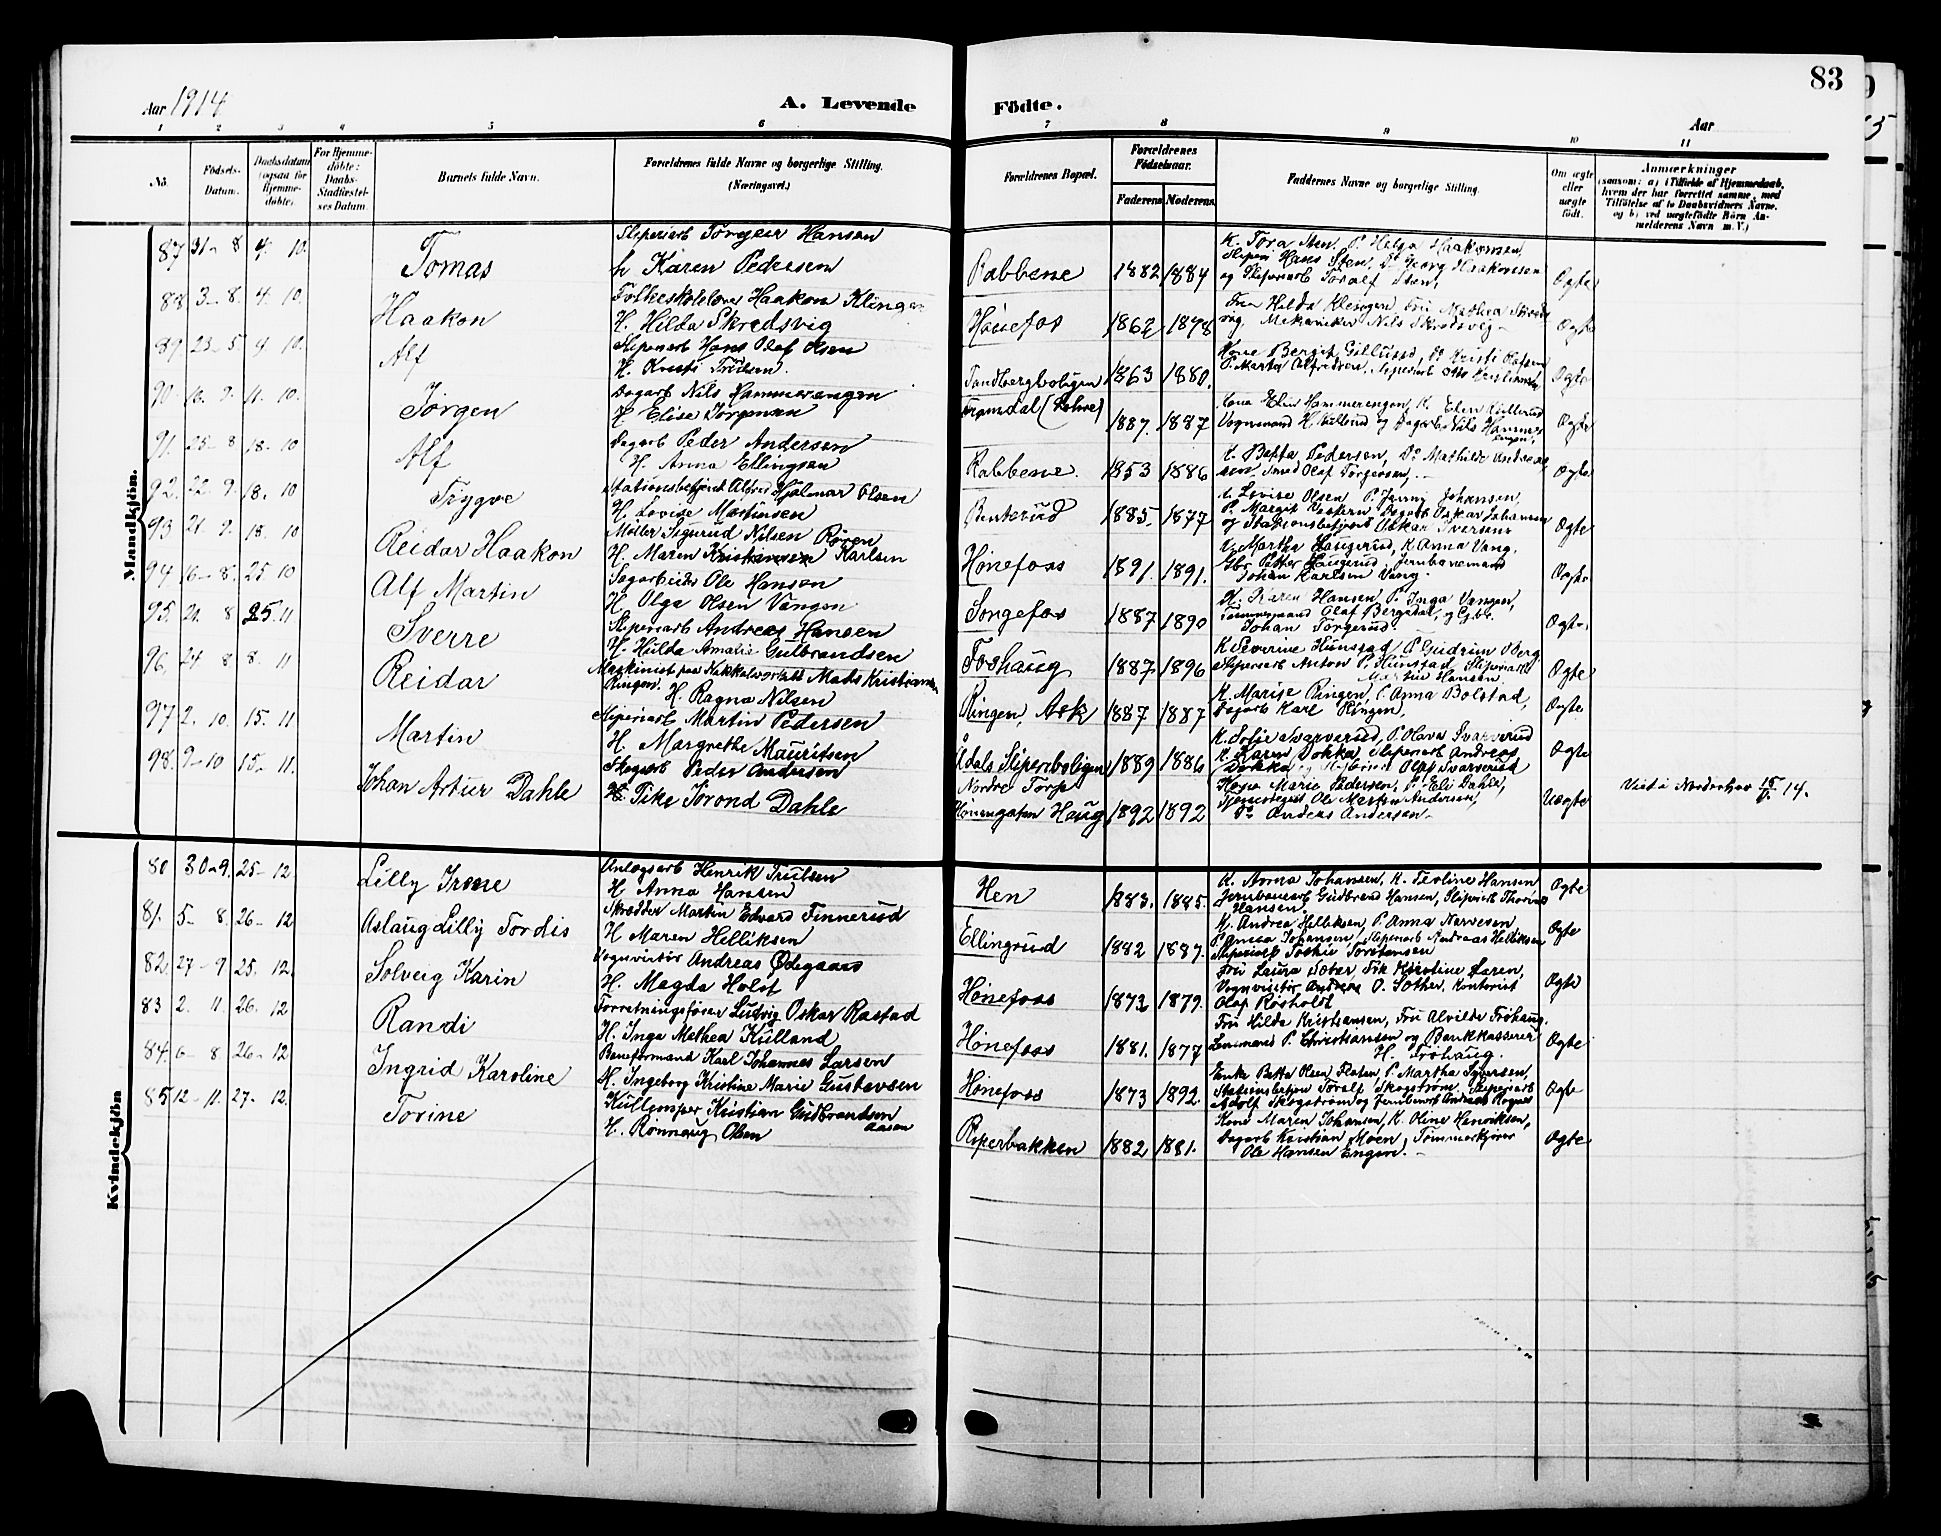 83
Aar 1914
A. Levende Födte.
Aar
1 2 3 4 5 6 7 8 9 10 11
No.
Födsels-Datum.
Daabsdatum (ogsaa for Hjemme-döbte).
For Hjemme-döbte: Daabs-Stadfæstel-ses Datum.
Barnets fulde Navn.
Forældrenes fulde Navne og borgerlige Stilling. (Næringsvei.)
Forældrenes Bopæl.
Forældrenes Födselsaar.
Faderens. Moderens.
Faddernes Navne og borgerlige Stilling.
Om ægte eller uægte födt.
Anmærkninger
(saasom: a) i Tilfælde af Hjemmedaab, hvem der har forrettet samme, med Tilföielse af to Daabsvidners Navne. og b) ved uægtefödte Börn An-melderens Navn m. V.)
Mandkjön.
87 31-8 4. 10. Tomas
Sliperiarb Torgeir Hansen
h Karen Pedersen
Rabbene 1882 1884
K. Tora Sten, P. Helga Haakonsen,
Hans Sten, Do Georg Haakonsen
og Sliperiarb Toralf Sten.
Ægte
88. 3-8. 4. 10. Haakon
Folkeskolelærer Haakon Klingen
H. Hilda Skredsvig
Hönefos 1862 1878
Fru Hilda Klingen, Fru Mathea Skreds
vig. Mekaniker Nils Skredsvig-
Ægte
89. 23-5 4. 10. Alf
Sliperiarb Hans Olaf Olsen
H. Kristi Trulsen.
Tandbergboligen 1863 1880.
Kone Bergit Gillund, Do Kristi
P. Marta Alfredsen, Sliperiarb Otto Kristiansen
Ægte
90. 10. 9. 11. 10. Jörgen
Dagarb Nils Hammerengen
H Elise Jörgensen
1887. 1887
Kone Elin Hammerengen, K. Elen Kullerud
Vognmand H. Kullerud og Dagarb Nils Hammer
engen.
Ægte
91. 25-8 18. 10 Alf
Dagarb Peder Andersen
H. Anna Ellingsen
Rabbene. 1853 1886
K. Betta Pedersen, Do Mathilde Andre
sen, Smed Olaf Torgersen,
Ægte
92. 22-9. 18. 10 Trygve
Stationsbetjent Alfred Hjalmar Olsen
H. Lovise Martinsen
Benterud 1885. 1877
K Lovise Olsen P. Jenny Johansen,
P. Margit Western, Dagarb Oskar Johansen
og Stationsbetjent Oskar Iversen
Ægte
93. 21-9. 18. 10 Reidar Haakon
Möller Sigurud Nilsen Rören
H. Maren Kristiansen Karlsen
Hönefoss 1891. 1891.
K. Martha Haugerud, K Anna Vang.
Gbr Petter Haugerud, Jernbanemand
Johan Karlsen Vang.
Ægte
94. 16-8. 25. 10 Alf Martin
Sagarbeider Ole Hansen
H Olga Olsen Vangen
Songefos 1887 1890
K. Karen Hansen, P. Inga Vangen,
Tömmermand Olaf Bergsdal, og Gjbr.
Johan Torgerud.
Ægte
95. 21. 8 25. 11 Sverre
Sliperiarb Andreas Hansen
H. Hulda Amalie Gulbrandsen
Foshaug 1887 1896
K Severine Hunstad, P. Gudrun Oberg
Sliperiarb Anton P. Hunstad, Sliperiarb
Martin Hansen.
Ægte
96. 24 8 8. 11 Reidar
Maskinist paa Nakkelverksted Mats Kristiansen
Ringen. H. Ragna Nilsen
Ringen, Ask 1887 1887
K. Marise Ringen, P. Anna Bolstad,
Dagarb Karl Ringen,
Ægte
97 2. 10. 15. 11 Martin
Sliperiarb Martin Pedersen
H. Margrethe Mauritsen
Ådals Sliperiboligen 1889 1886
K. Sofie Svarverud, P. Olava Svarverud
K. Karen Dokka, Sliperiarb Andreas
Dokka og Sliperiarb Olaf Svarverud
Ægte
98. 9-10 15-11. Johan Artur Dahle
Skogarb Peder Andersen
Pike Jörond Dahle
Nordre Torp
Hönengaten Haug 1892 1892
Kone Marie Pedersen, P. Eli Dahle,
Tjenestegut Ole Morten Andersen,
Do Anders Andersen-
Uægte
Viet i Norderhov 15/11 14.
Kvindekjön
80 30-9. 25-12 Lilly Irene
Anlægsarb Henrik Trulsen
H. Anna Hansen
Hen 1883. 1885.
K. Anna Johansen, K. Teoline Hansen
Jernbanearb Gudbrand Hansen, Sliperiarb Thorvald
Hansen.
Ægte
81. 5-8. 26-12 Aslaug Lilly Tordis
Skrædder Martin Edvard Finnerud
H Maren Helliksen
Ellingrud 1882 1887.
K. Andrea Helliksen, P. Anna Narvesen
P. Anna Johansen, Sliperiarb Andreas Helliksen
Sliperiarb Torstensen
Ægte
82. 27-9 25. 12. Solveig Karin
Vognvisitör Andreas Ødegaard
H. Magda Holst
Hönefoss 1872 1879.
Fru Laura Sother, Frk Kristine Laren,
Vognvisitör Andreas O. Sother, Kontorist
Olaf Rösholdt
Ægte
83 2. 11. 26. 12 Randi
Forretningsförer Ludvig Oskar Rastad
H. Inga Mathea Kulland
Hönefoss 1881. 1877
Fru Hilda Kristiansen, Fru Alvilde Fröhaug.
Lensmand P. Christiansen og Bankkasserer
H. Fröhaug.
Ægte
84. 6-8. 26-12 Ingrid Karoline
Baneformand Karl Johannes Larsen
H. Ingeborg Kristine Marie Gustavsen
Hönefoss 1873 1892
Enke Betta Olsen Flaten, P. Martha Syversen,
Stationsbetjen Toralf Skogström, Sliperiarb
Adolf Skogström og Jernbanearb Andreas Rognes
Ægte
85 12-11. 27-12. Torine
Kullemper Kristian Gudbrandsen
Aasen
H. Rönnaug Olsen
Riperbakken 1882 1881.
Kone Maren Johansen, K. Oline Henriksen,
Dagarb Kristian Moen, Tömmerkjörer
Ole Hansen Engen.-
Ægte